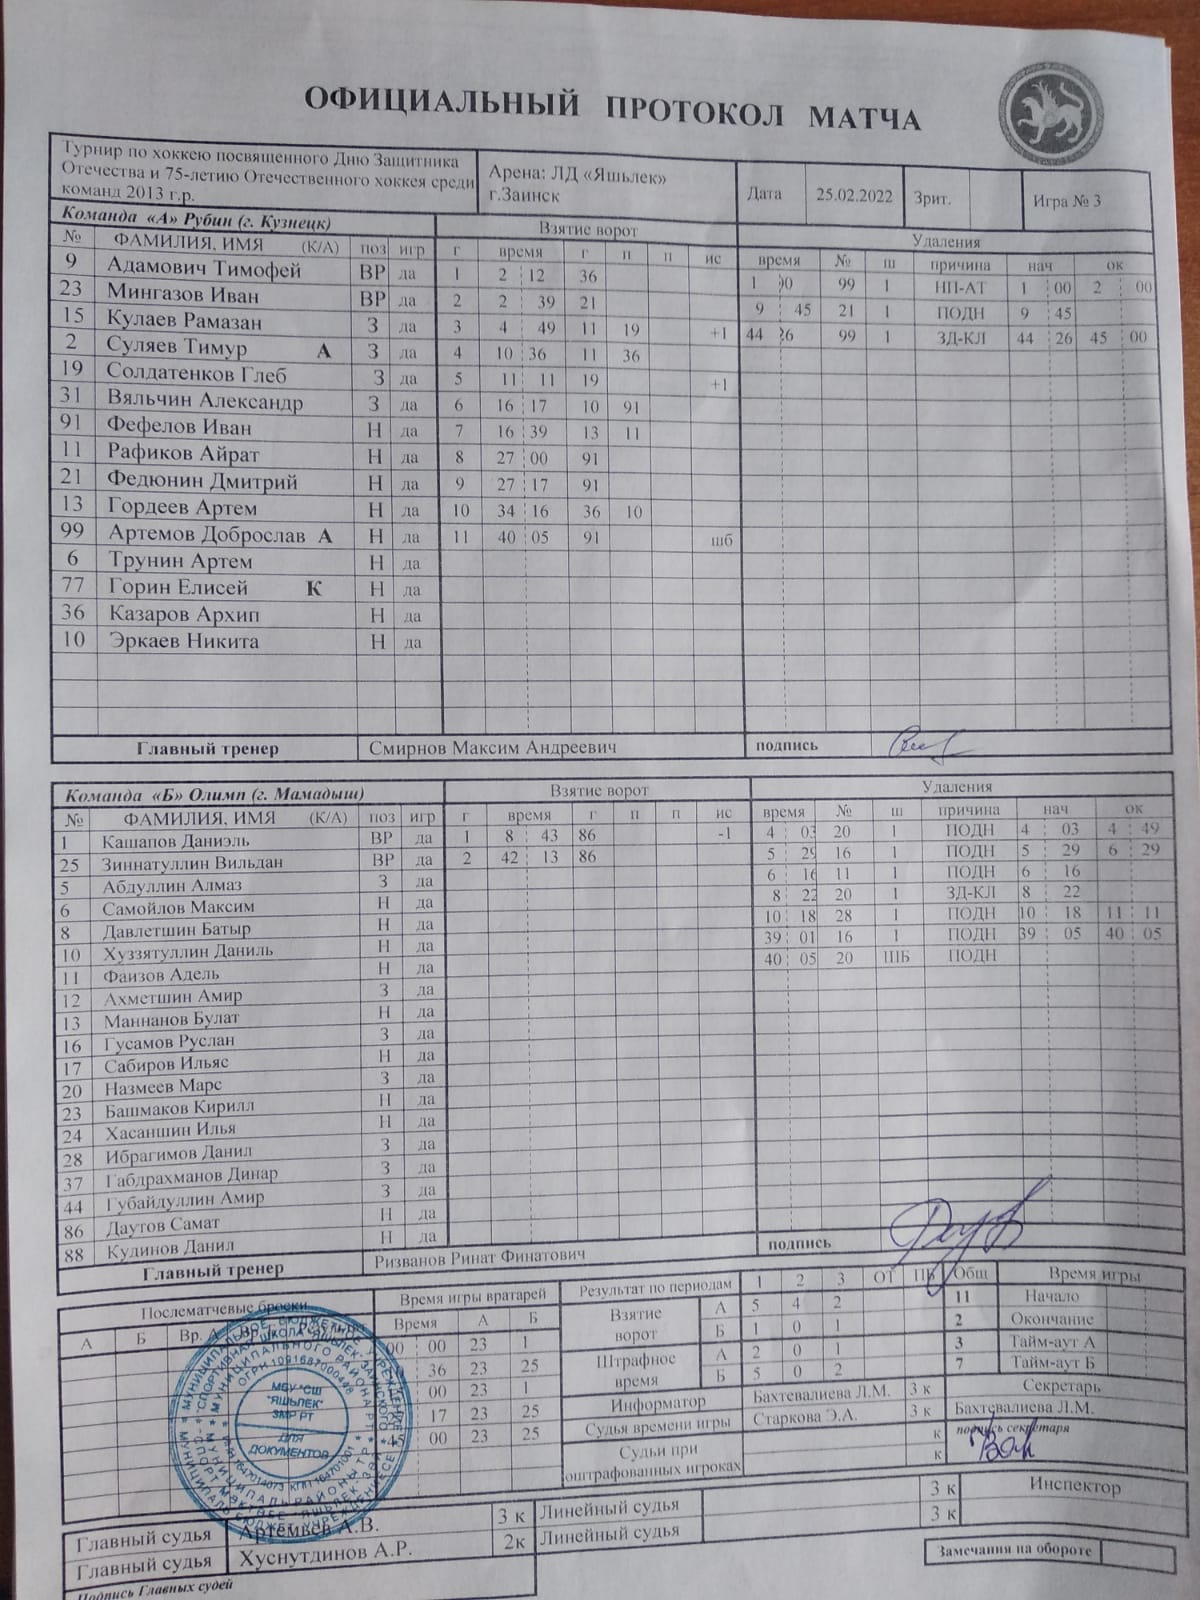 ОФИЦИАЛЬНЫЙ ПРОТОКОЛ МАТЧА
Турнир по хоккею посвященного Дню Защитника
Отечества и 75-летию Отечественного хоккея среди
команд 2013 г.р.
Арена: ЛД «Яшьлек»
г.Заинск
Дата 25.02.2022 Зрит. Игра № 3
Команда «А» Рубин (г. Кузнецк) Взятие ворот Удаления
№ ФАМИЛИЯ, ИМЯ (К/А) поз игр г время г п п ис время № ш причина нач ок
9 Адамович Тимофей ВР да 1 2 12 36 1 00 99 1 НП-АТ 1 00 2 00
23 Мингазов Иван ВР да 2 2 39 21 9 45 21 1 ПОДН 9 45
15 Кулаев Рамазан З да 3 4 49 11 19 +1 44 26 99 1 ЗД-КЛ 44 26 45 00
2 Суляев Тимур А З да 4 10 36 11 36
19 Солдатенков Глеб З да 5 11 11 19 +1
31 Вяльчин Александр З да 6 16 17 10 91
91 Фефелов Иван Н да 7 16 39 13 11
11 Рафиков Айрат Н да 8 27 00 91
21 Федюнин Дмитрий Н да 9 27 17 91
13 Гордеев Артем Н да 10 34 16 36 10
99 Артемов Доброслав А Н да 11 40 05 91 шб
6 Трунин Артем Н да
77 Горин Елисей К Н да
36 Казаров Архип Н да
10 Эркаев Никита Н да
Главный тренер Смирнов Максим Андреевич подпись
Команда «Б» Олимп (г. Мамадыш) Взятие ворот Удаления
№ ФАМИЛИЯ, ИМЯ (К/А) поз игр г время г п п ис время № ш причина нач ок
1 Кашапов Даниэль ВР да 1 8 43 86 -1 4 03 20 1 ПОДН 4 03 4 49
25 Зиннатуллин Вильдан ВР да 2 42 13 86 5 29 16 1 ПОДН 5 29 6 29
5 Абдуллин Алмаз З да 6 16 11 1 ПОДН 6 16
6 Самойлов Максим Н да 8 22 20 1 ЗД-КЛ 8 22
8 Давлетшин Батыр Н да 10 18 28 1 ПОДН 10 18 11 11
10 Хуззятуллин Даниль Н да 39 01 16 1 ПОДН 39 05 40 05
11 Фаизов Адель Н да 40 05 20 ШБ ПОДН
12 Ахметшин Амир З да
13 Маннанов Булат Н да
16 Гусамов Руслан З да
17 Сабиров Ильяс Н да
20 Назмеев Марс З да
23 Башмаков Кирилл Н да
24 Хасаншин Илья Н да
28 Ибрагимов Данил З да
37 Габдрахманов Динар З да
44 Губайдуллин Амир З да
86 Даутов Самат Н да
88 Кудинов Данил Н да
Главный тренер Ризванов Ринат Финатович подпись
Послематчевые броски Время игры вратарей Результат по периодам 1 2 3 ОТ ПБ Общ Время игры
А Б Вр. А Время А Б Взятие ворот А 5 4 2 11 Начало
00 00 23 1 Б 1 0 1 2 Окончание
36 23 25 Штрафное время А 2 0 1 3 Тайм-аут А
00 23 1 Б 5 0 2 7 Тайм-аут Б
17 23 25 Информатор Бахтевалиева Л.М. 3 к Секретарь
45 00 23 25 Судья времени игры Старкова Э.А. 3 к Бахтевалиева Л.М.
Судьи при оштрафованных игроках к подпись секретаря
к
МБУ "СШ
"ЯШЬЛЕК"
ЗМР РТ
ДЛЯ
ДОКУМЕНТОВ
ОГРН 1091687000448
Главный судья Артемьев А.В. 3 к Линейный судья 3 к Инспектор
Главный судья Хуснутдинов А.Р. 2к Линейный судья 3 к
Подпись Главных судей Замечания на обороте